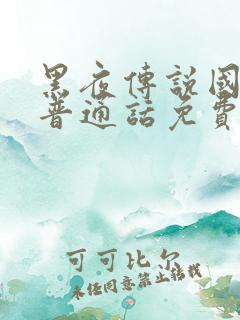 黑夜傳說國
普通話免費
可可比尔
未经同意禁止转载